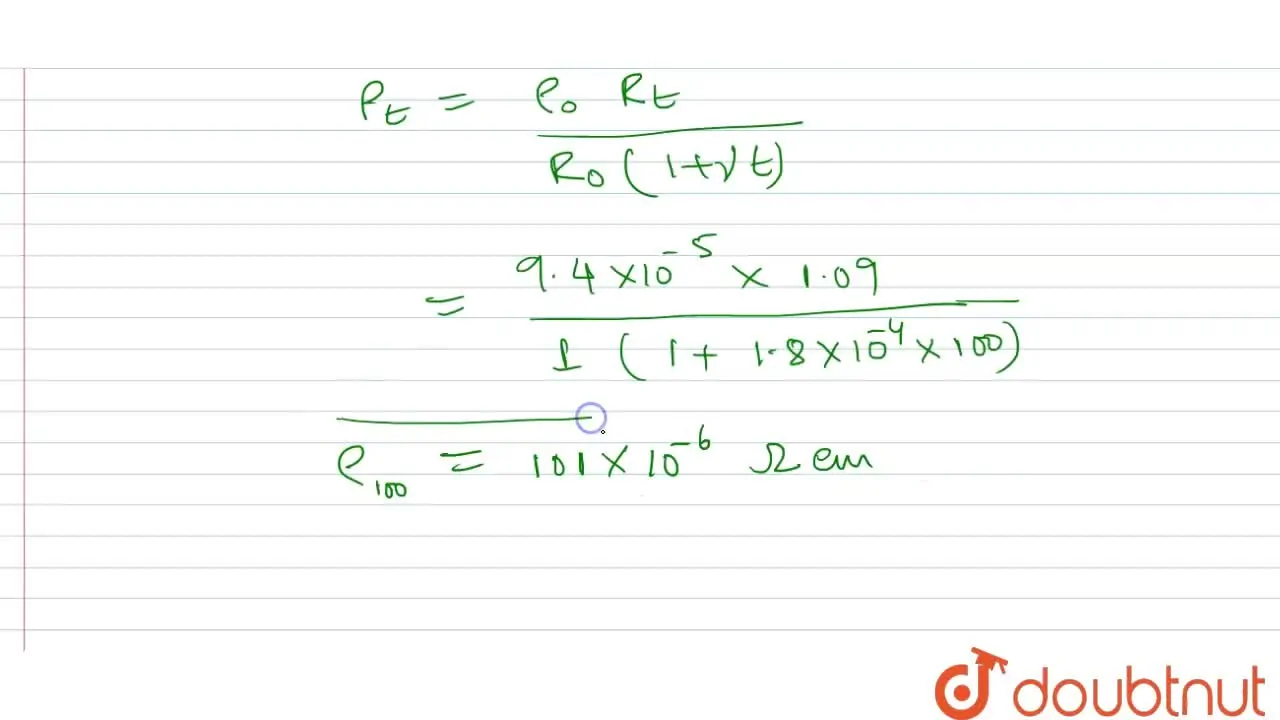 ρt = ρ0 Rt
R0 (1+γt)
= 9.4 × 10^-5 × 1.09
1 ( 1 + 1.8 × 10^-4 × 100)
ρ100 = 101 × 10^-6 Ω cm
doubtnut